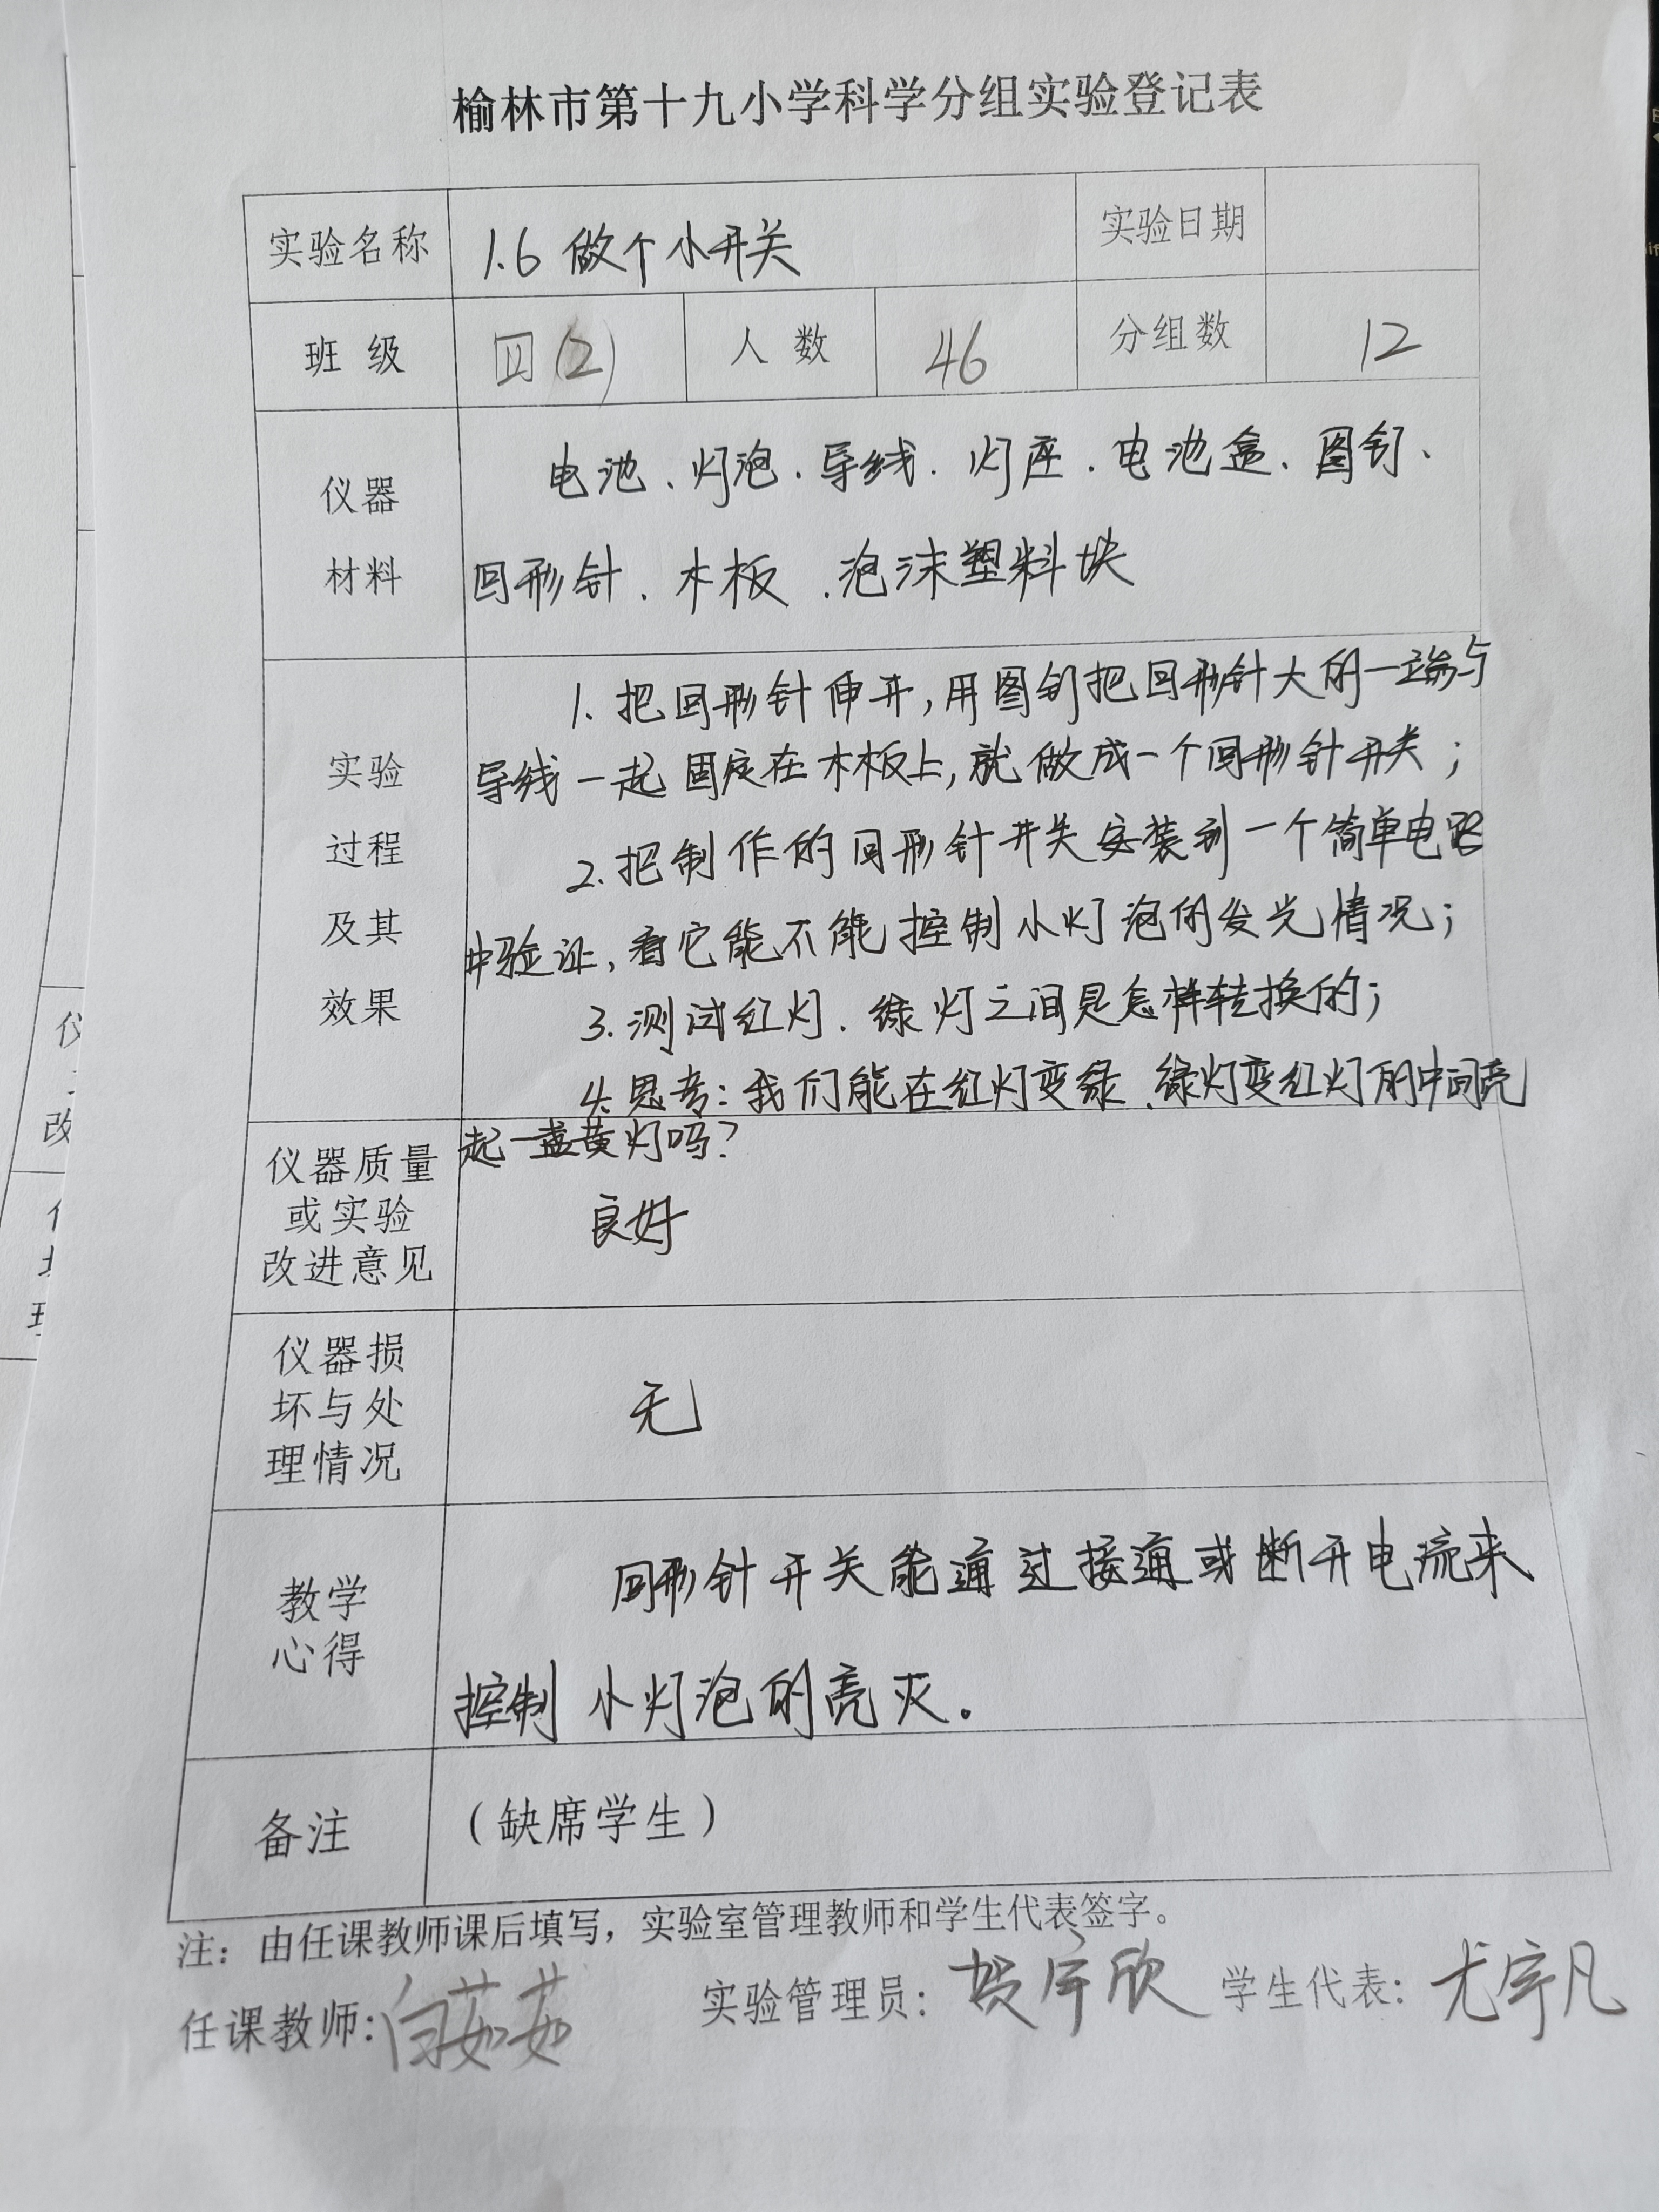 榆林市第十九小学科学分组实验登记表
实验名称 1.6 做个小开关 实验日期
班 级 四(2) 人 数 46 分组数 12
仪器
材料
电池、灯泡、导线、灯座、电池盒、图钉、
回形针、木板、泡沫塑料块
实验
过程
及其
效果
1. 把回形针伸开,用图钉把回形针大的一端与
导线一起固定在木板上,就做成一个回形针开关;
2. 把制作的回形针开关安装到一个简单电路
中验证,看它能不能控制小灯泡的发光情况;
3. 测试红灯、绿灯之间是怎样转换的;
4. 思考:我们能在红灯变绿、绿灯变红灯的中间亮
起一盏黄灯吗?
仪器质量
或实验
改进意见
良好
仪器损
坏与处
理情况
无
教学
心得
回形针开关能通过接通或断开电流来
控制小灯泡的亮灭。
备注 (缺席学生)
注:由任课教师课后填写,实验室管理教师和学生代表签字。
任课教师:白茹茹 实验管理员:贺宇欣 学生代表:尤宇凡
仪
改
理